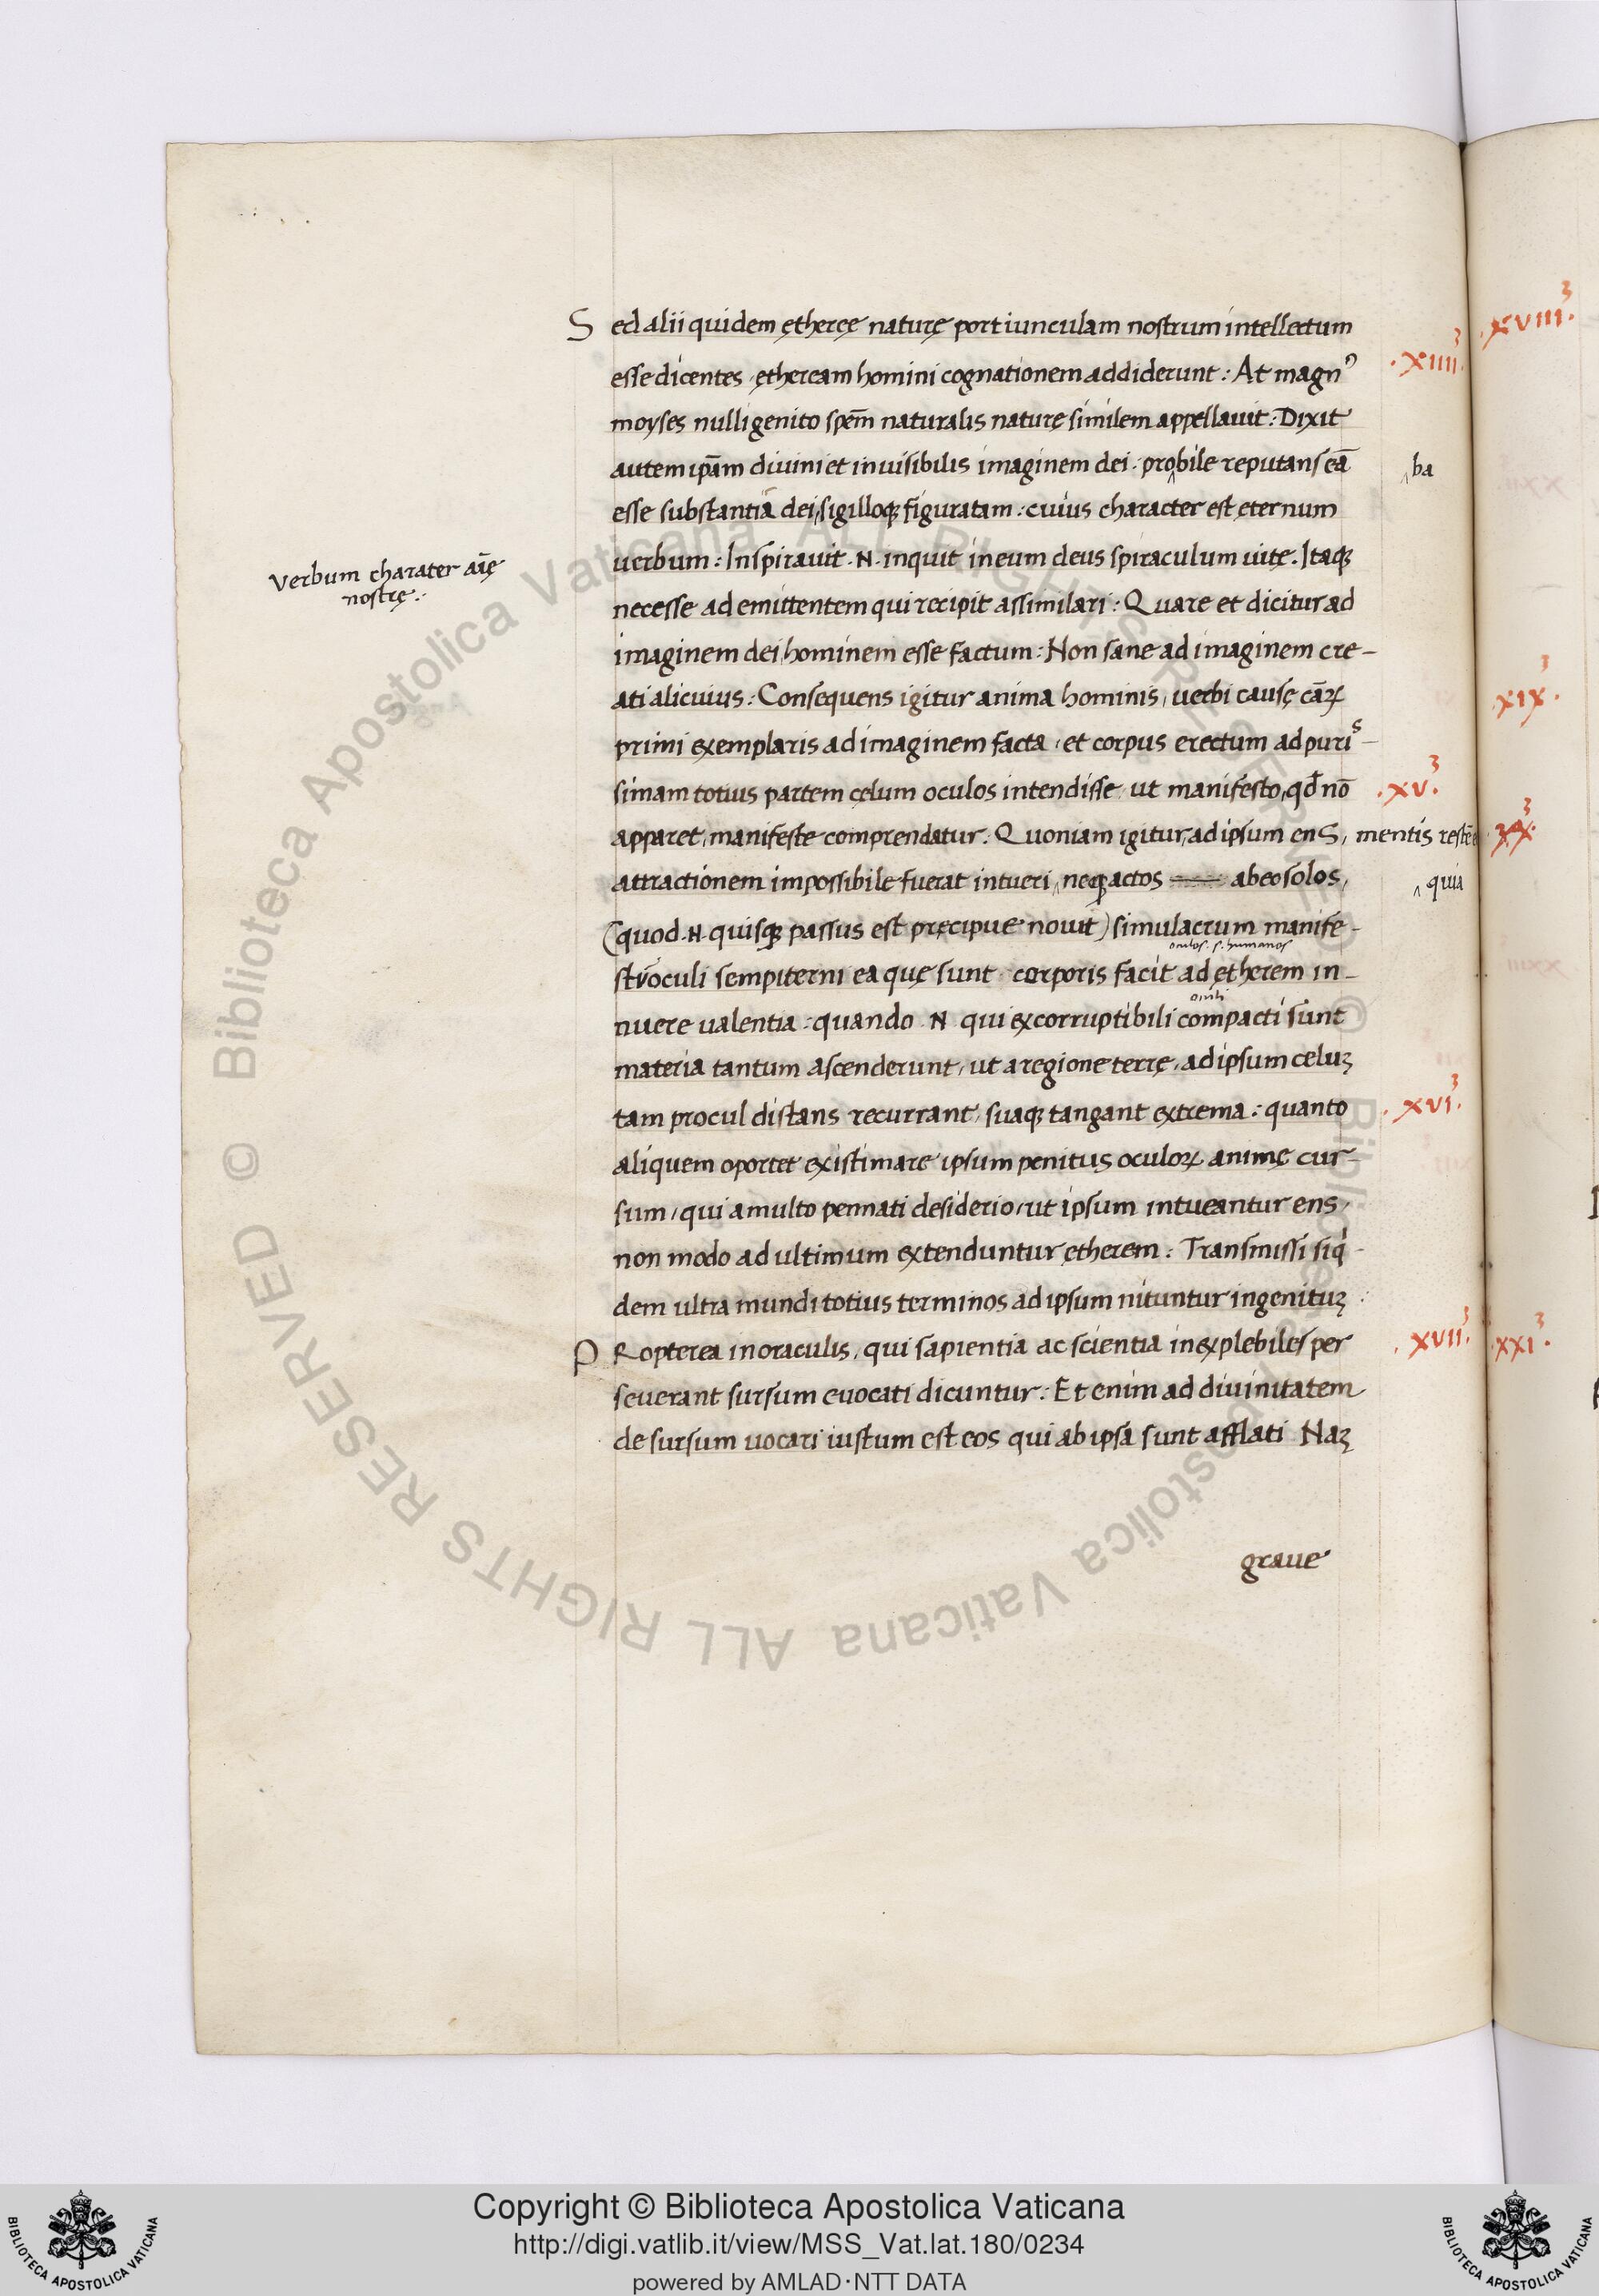 Sed alii quidem ęthereę naturę portiunculam nostrum intellectum
esse dicentes, ętheream homini cognationem addiderunt: At magnꝰ
.XIIII.3
moyses nulli genito spēm naturalis naturę similem appellauit: Dixit
autem ip̄am diuini et inuisibilis imaginem dei: pro‸bile reputans eā
‸ba
esse substantiā dei, sigilloqꝫ figuratam: cuius character est ęternum
uerbum: Inspirauit .N. inquit in eum deus spiraculum uitę. Itaqꝫ
Verbum charater aīę
nostrę:·
necesse ad emittentem qui recipit assimilari: Quare et dicitur ad
imaginem dei, hominem esse factum: Non sane ad imaginem cre-
ati alicuius: Consequens igitur anima hominis, uerbi causę cāꝝ
primi exemplaris ad imaginem facta, et corpus erectum ad puris-
simam totius partem cęlum oculos intendisse, ut manifesto, qd̄ nō
.XV.3
apparet, manifeste comprendatur: Quoniam igitur, ad ipsum enS, mentis
attractionem impossibile fuerat intueri, ‸neqꝫ actos ab eo solos,
‸quia
(quod .N. quisqꝫ passus est pręcipue nouit) simulacrum manife-
oculos .s. humanos
oculi sempiterni ea quę sunt corporis facit ad ętherem in-
nuere ualentia: quando .N. qui ex corruptibili compacti sunt
materia tantum ascenderunt, ut a regione terrę, ad ipsum celuꝫ
tam procul distans recurrant, suaqꝫ tangant extrema: quanto
.XVI.3
aliquem oportet existimare ipsum penitus oculoꝝ animę cur-
sum, qui a multo pennati desiderio, ut ipsum intueantur ens,
non modo ad ultimum extenduntur ętherem: Transmissi siq-
dem ultra mundi totius terminos ad ipsum nituntur ingenituꝫ
PRopterea in oraculis, qui sapientia ac scientia inexplebiles per
.XVII.3
seuerant sursum euocati dicuntur: Et enim ad diuinitatem
de sursum uocari iustum est eos qui ab ipsa sunt afflati Naꝫ
graue
.XVIII.3
.XIX.3
XX.3
.XXI.3
Copyright © Biblioteca Apostolica Vaticana
http://digi.vatlib.it/view/MSS_Vat.lat.180/0234
powered by AMLAD·NTT DATA
BIBLIOTECA APOSTOLICA VATICANA
BIBLIOTECA APOSTOLICA VATICANA
© Biblioteca Apostolica Vaticana ALL RIGHTS RESERVED © Biblioteca Apostolica Vaticana ALL RIGHTS RESERVED